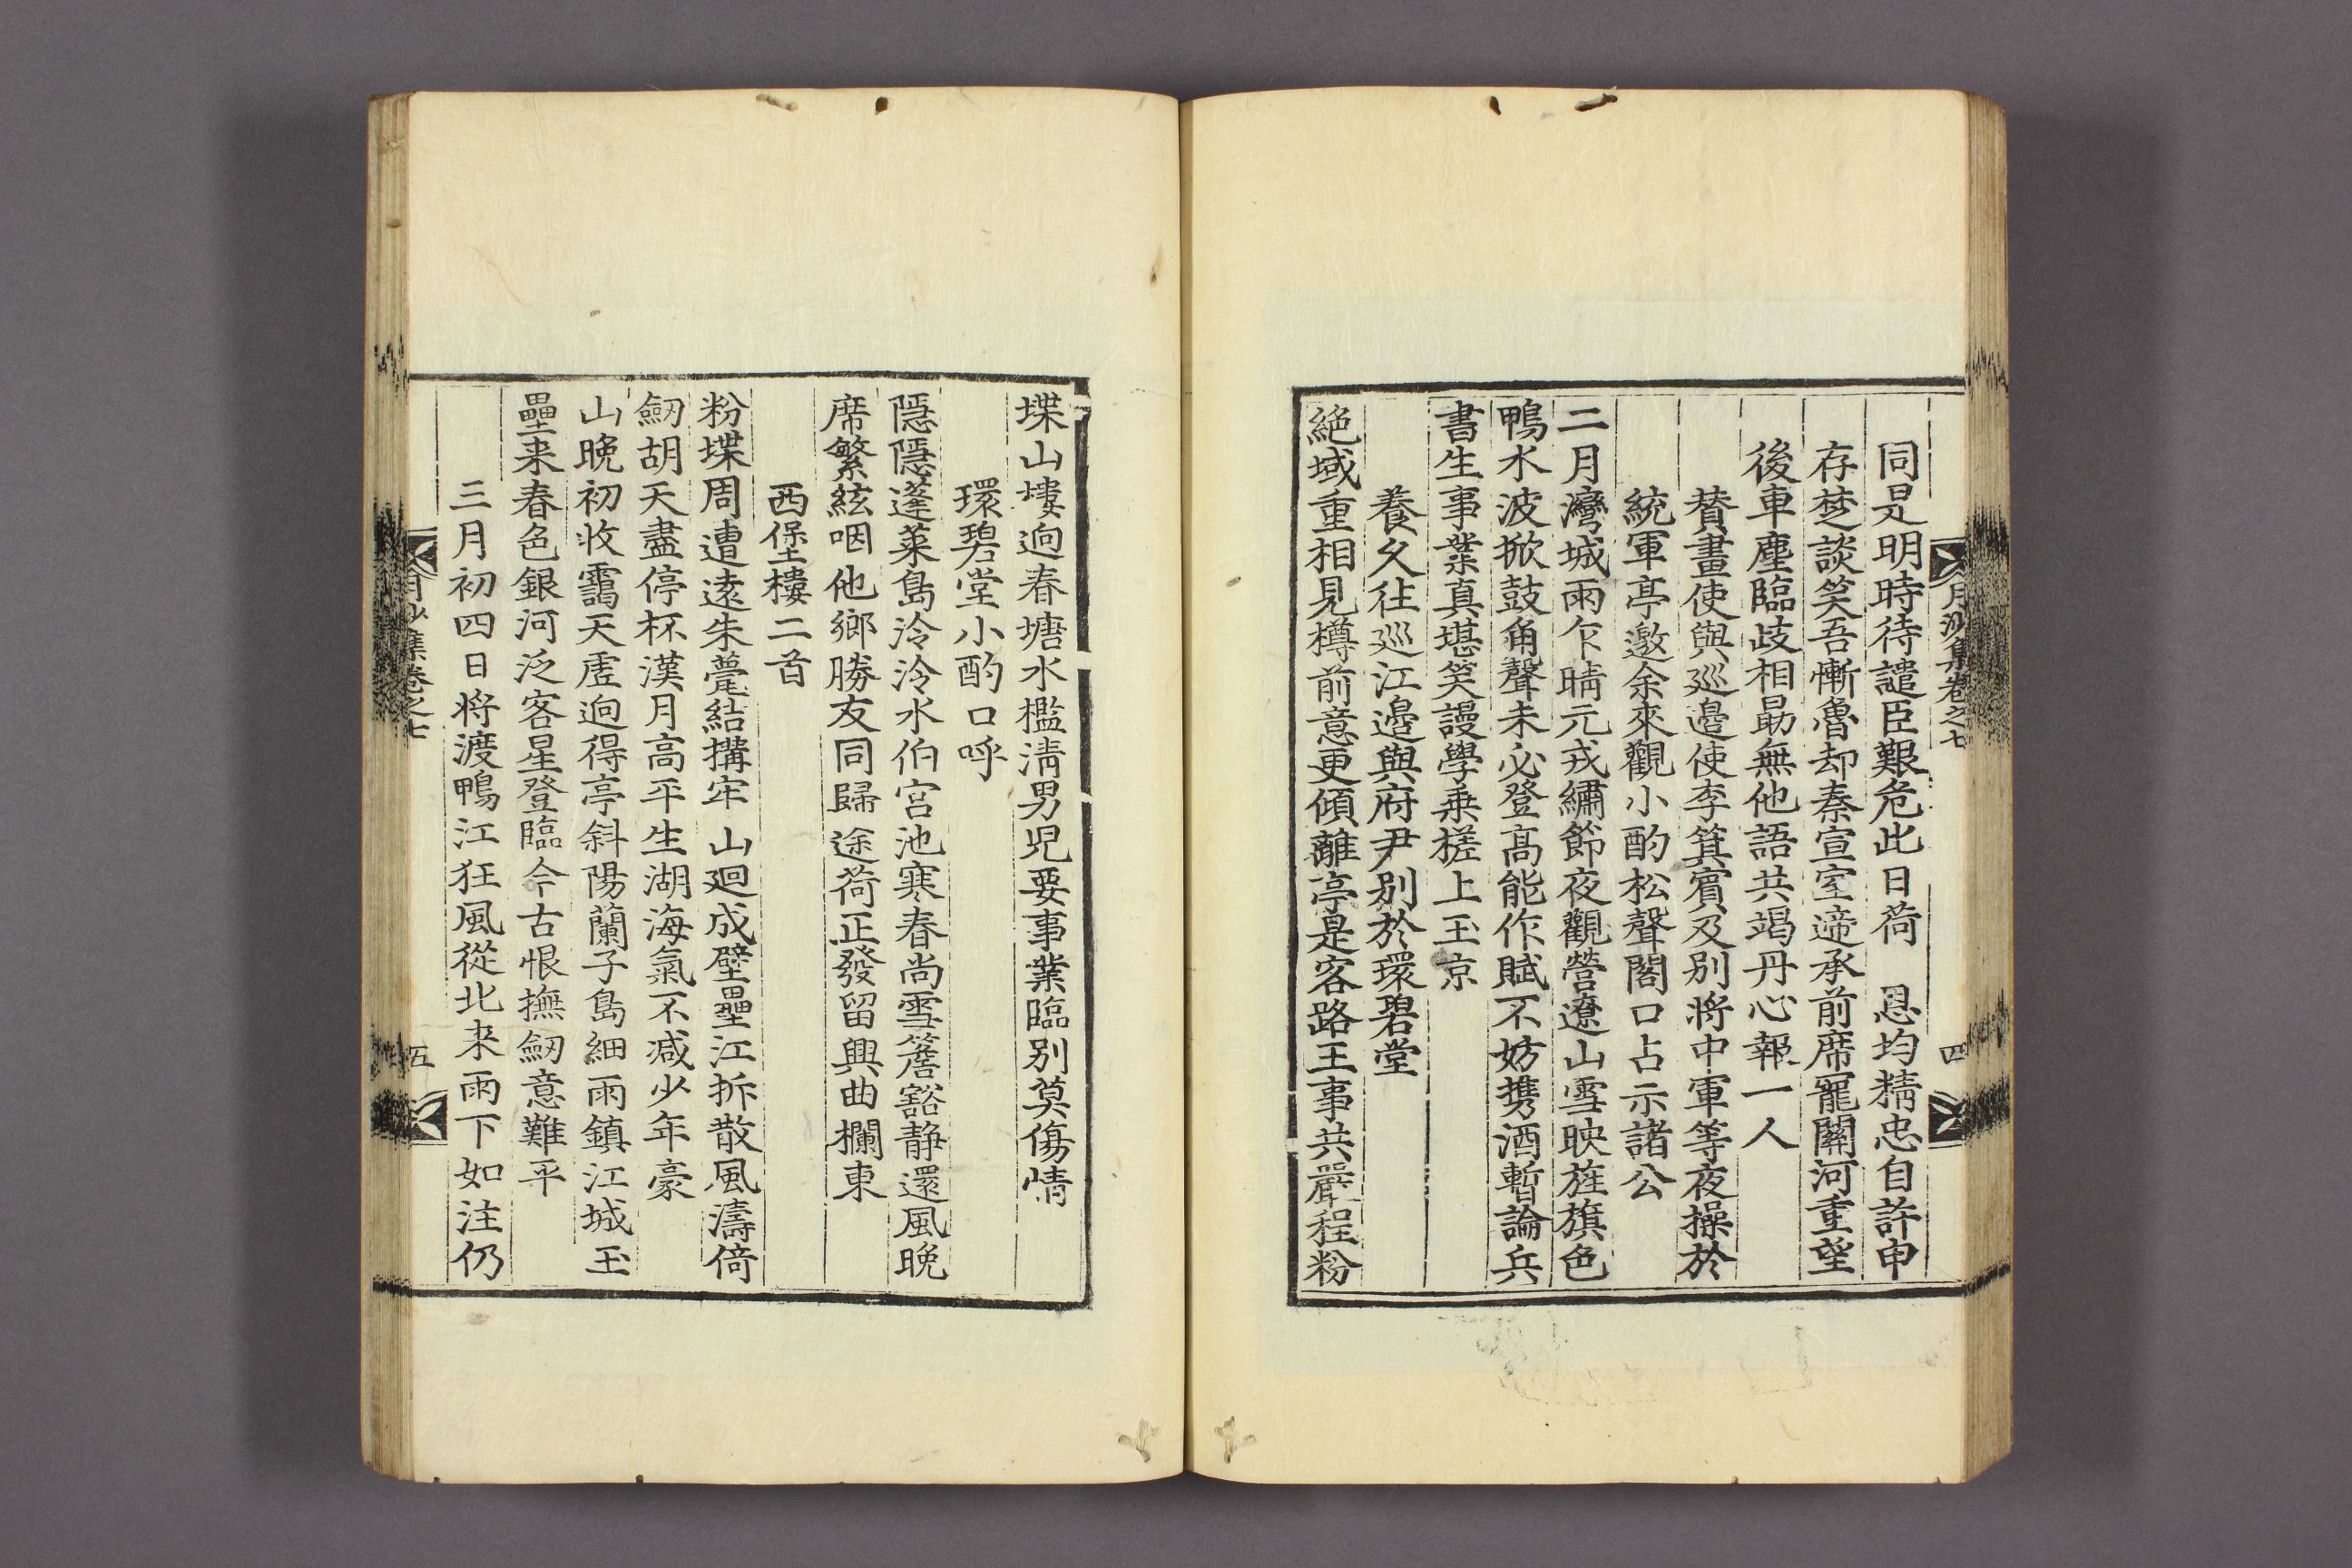 同是明時待譴臣艱危此日荷　恩均精忠自許申
存楚談笑吾慚魯却秦宣室遆承前席寵關河重望
後車塵臨歧相勗無他語共竭丹心報一人
賛畫使與廵邉使李箕賓及別將中軍等夜操於
統軍亭邀余來觀小酌松聲閣口占示諸公
二月灣城雨乍晴元戎繡節夜觀營遼山雪映旌旗色
鴨水波掀鼓角聲未必登高能作賦不妨携酒暫論兵
書生事業真堪笑謾學乗槎上玉京
養久往廵江邉與府尹別於環碧堂
絶域重相見樽前意更傾離亭是客路王事共嚴程粉
月沙集卷之七
四
堞山塿逈春塘水檻淸男児要事業臨別莫傷情
環碧堂小酌口呼
隱隱蓬萊島泠泠水伯宮池寒春尚雪簷豁静還風晩
席繁絃咽他鄉勝友同歸途荷正發留興曲欄東
西堡樓二首
粉堞周遭遠朱甍結搆牢山廻成壁壘江拆散風濤倚
劒胡天盡停杯漢月高平生湖海氣不减少年豪
山晩初收靄天虛逈得亭斜陽蘭子島細雨鎮江城玉
壘来春色銀河泛客星登臨今古恨撫劒意難平
三月初四日将渡鴨江狂風從北来雨下如注仍
月沙集卷之七
五